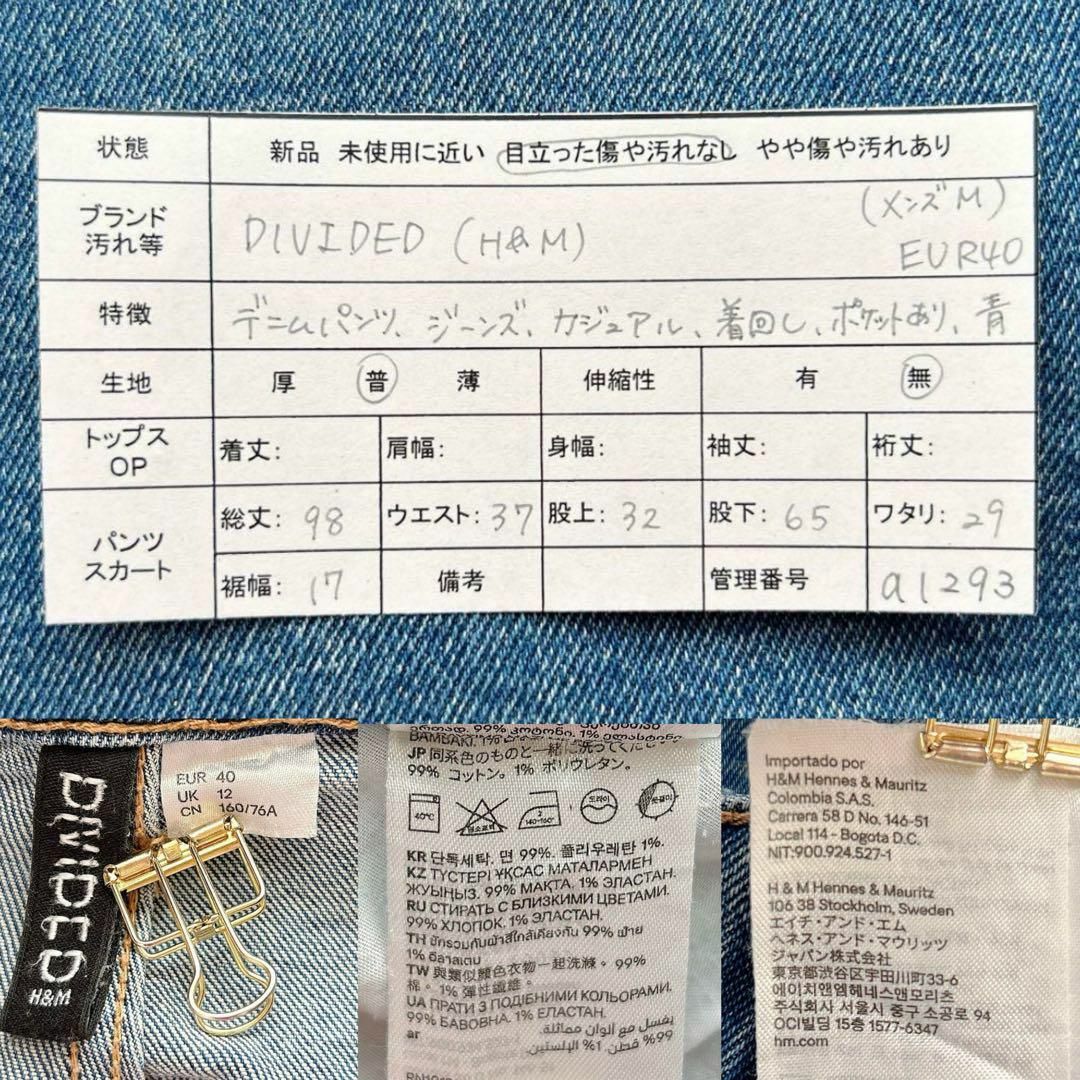 状態 新品 未使用に近い 目立った傷や汚れなし やや傷や汚れあり
ブランド 汚れ等 DIVIDED (H&M) (メンズM) EUR40
特徴 デニムパンツ、ジーンズ、カジュアル、着回し、ポケットあり、青
生地 厚 普 薄 伸縮性 有 無
トップス OP 着丈: 肩幅: 身幅: 袖丈: 裄丈:
パンツ スカート 総丈: 98 ウエスト: 37 股上: 32 股下: 65 ワタリ: 29
裾幅: 17 備考 管理番号 a1293
DIVIDED
H&M
EUR 40
UK 12
CN 160/76A
JP 同系色のものと一緒に洗ってください
99% コットン. 1% ポリウレタン.
40℃ 염소표백 2 140-160℃ 드라이 옷걸이
KR 단독세탁. 면 99%. 폴리우레탄 1%.
KZ ТҮСТЕРІ ҰҚСАС МАТАЛАРМЕН
ЖУЫҢЫЗ. 99% МАҚТА. 1% ЭЛАСТАН.
RU СТИРАТЬ С БЛИЗКИМИ ЦВЕТАМИ.
99% ХЛОПОК. 1% ЭЛАСТАН.
TH ซักรวมกับผ้าสีใกล้เคียงกัน 99% ฝ้าย
1% อีลาสเตน
TW 與類似顏色衣物一起洗滌。99%
棉。1% 彈性纖維。
UA ПРАТИ З ПОДІБНИМИ КОЛЬОРАМИ.
99% БАВОВНА. 1% ЕЛАСТАН.
يغسل مع ألوان مماثلة.
ar 99% قطن. 1% الإلستين.
Importado por
H&M Hennes & Mauritz
Colombia S.A.S.
Carrera 58 D No. 146-51
Local 114 - Bogota D.C.
NIT:900.924.527-1
H & M Hennes & Mauritz
106 38 Stockholm, Sweden
エイチ・アンド・エム
ヘネス・アンド・マウリッツ
ジャパン株式会社
東京都渋谷区宇田川町33-6
에이치앤엠헤네스앤모리츠
주식회사 서울시 중구 소공로 94
OCI빌딩 15층 1577-6347
hm.com